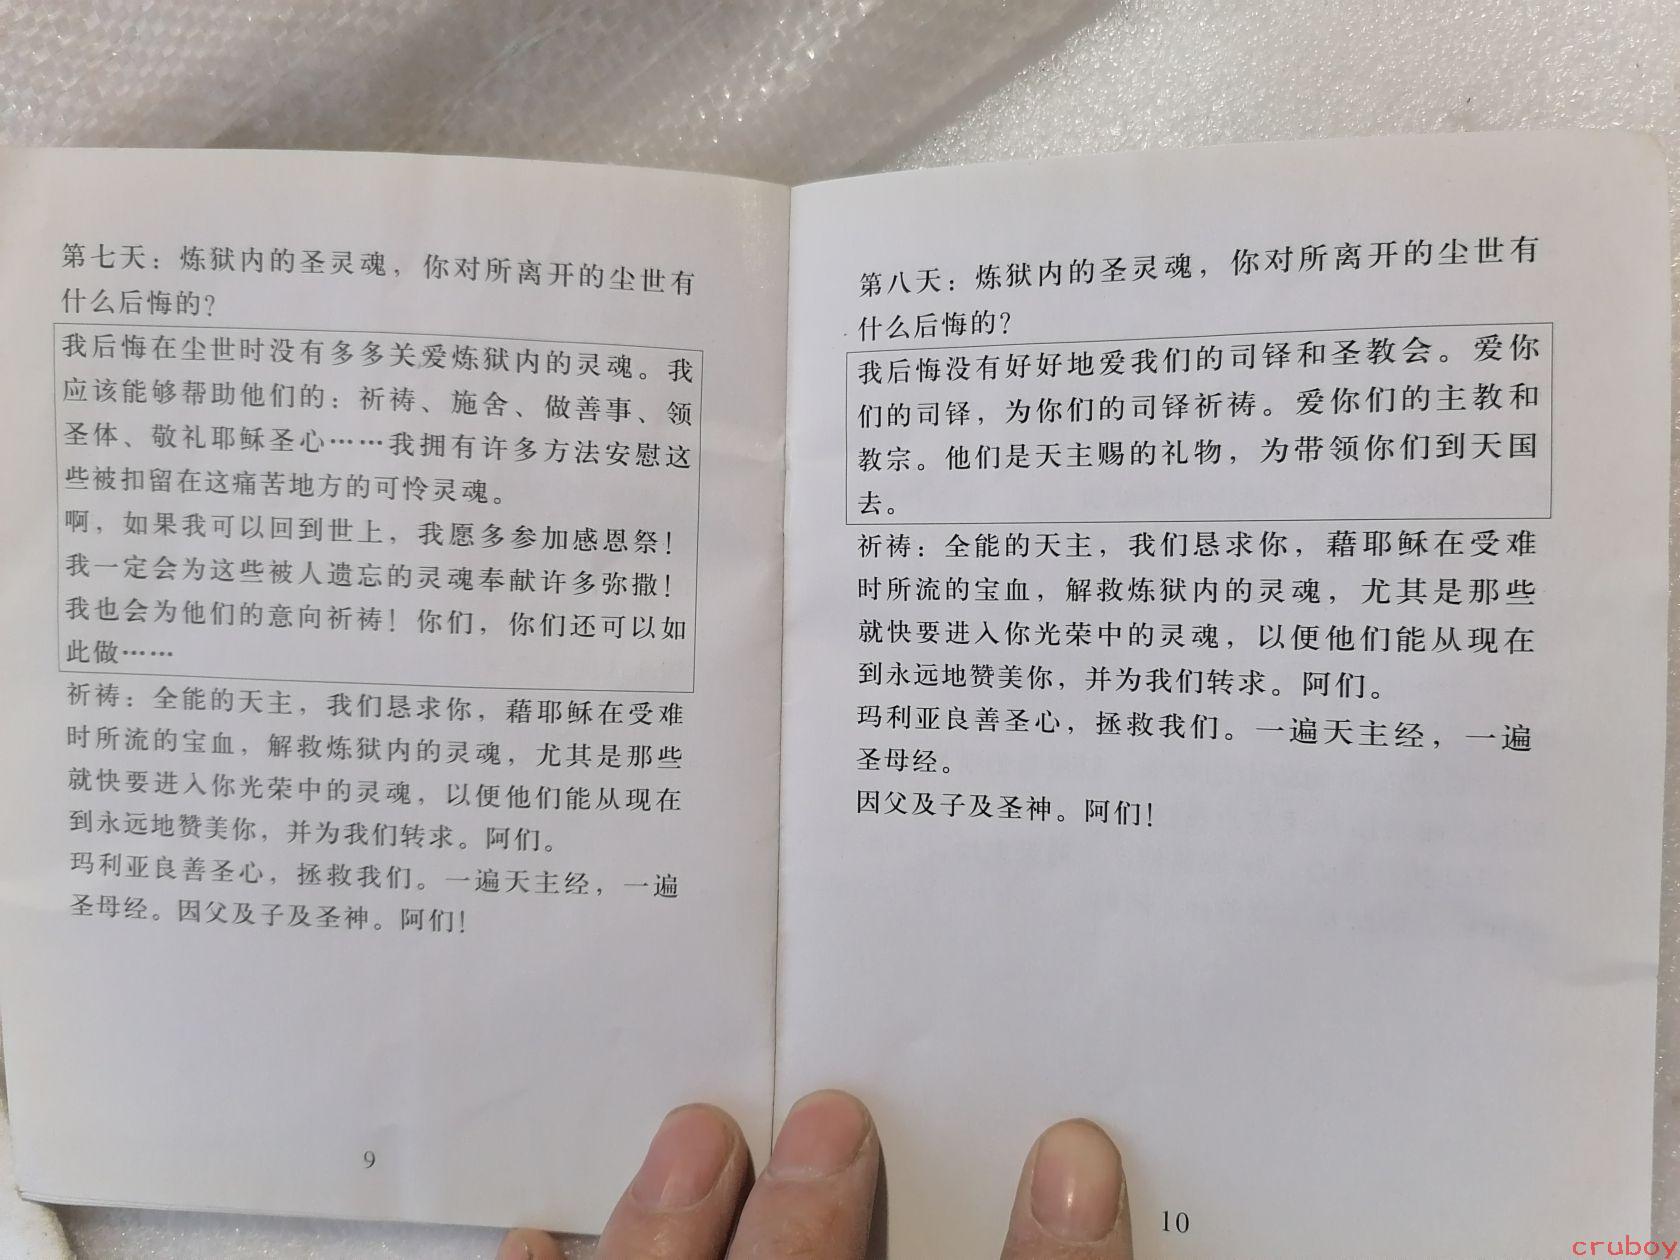 第七天：炼狱内的圣灵魂，你对所离开的尘世有
什么后悔的？
我后悔在尘世时没有多多关爱炼狱内的灵魂。我
应该能够帮助他们的：祈祷、施舍、做善事、领
圣体、敬礼耶稣圣心……我拥有许多方法安慰这
些被扣留在这痛苦地方的可怜灵魂。
啊，如果我可以回到世上，我愿多参加感恩祭！
我一定会为这些被人遗忘的灵魂奉献许多弥撒！
我也会为他们的意向祈祷！你们，你们还可以如
此做……
祈祷：全能的天主，我们恳求你，藉耶稣在受难
时所流的宝血，解救炼狱内的灵魂，尤其是那些
就快要进入你光荣中的灵魂，以便他们能从现在
到永远地赞美你，并为我们转求。阿们。
玛利亚良善圣心，拯救我们。一遍天主经，一遍
圣母经。因父及子及圣神。阿们！
9
第八天：炼狱内的圣灵魂，你对所离开的尘世有
什么后悔的？
我后悔没有好好地爱我们的司铎和圣教会。爱你
们的司铎，为你们的司铎祈祷。爱你们的主教和
教宗。他们是天主赐的礼物，为带领你们到天国
去。
祈祷：全能的天主，我们恳求你，藉耶稣在受难
时所流的宝血，解救炼狱内的灵魂，尤其是那些
就快要进入你光荣中的灵魂，以便他们能从现在
到永远地赞美你，并为我们转求。阿们。
玛利亚良善圣心，拯救我们。一遍天主经，一遍
圣母经。
因父及子及圣神。阿们！
10
cruboy